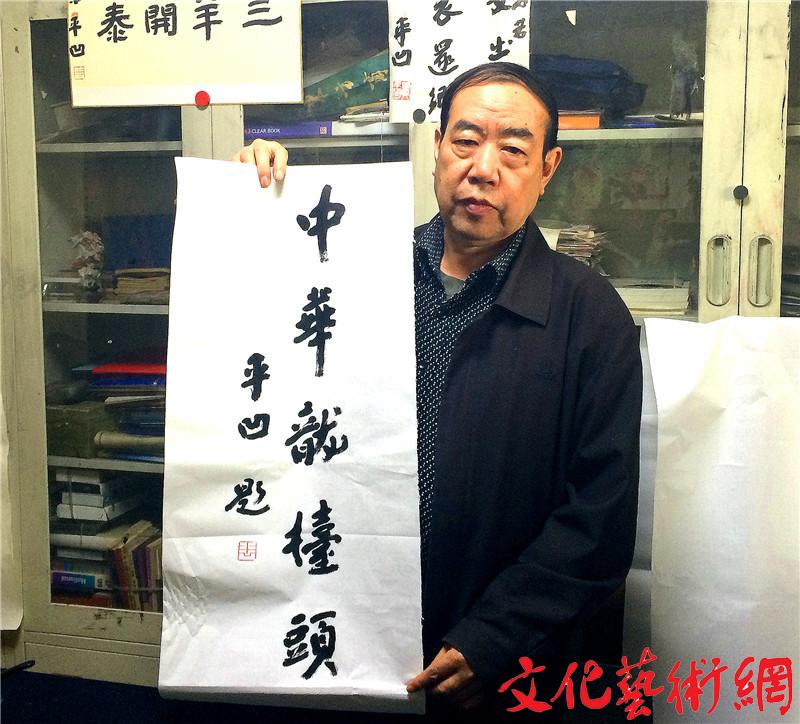 三羊開泰
平凹
衣還鄉
平凹
CLEAR BOOK
中華龍檯頭
平凹题
文化藝術網